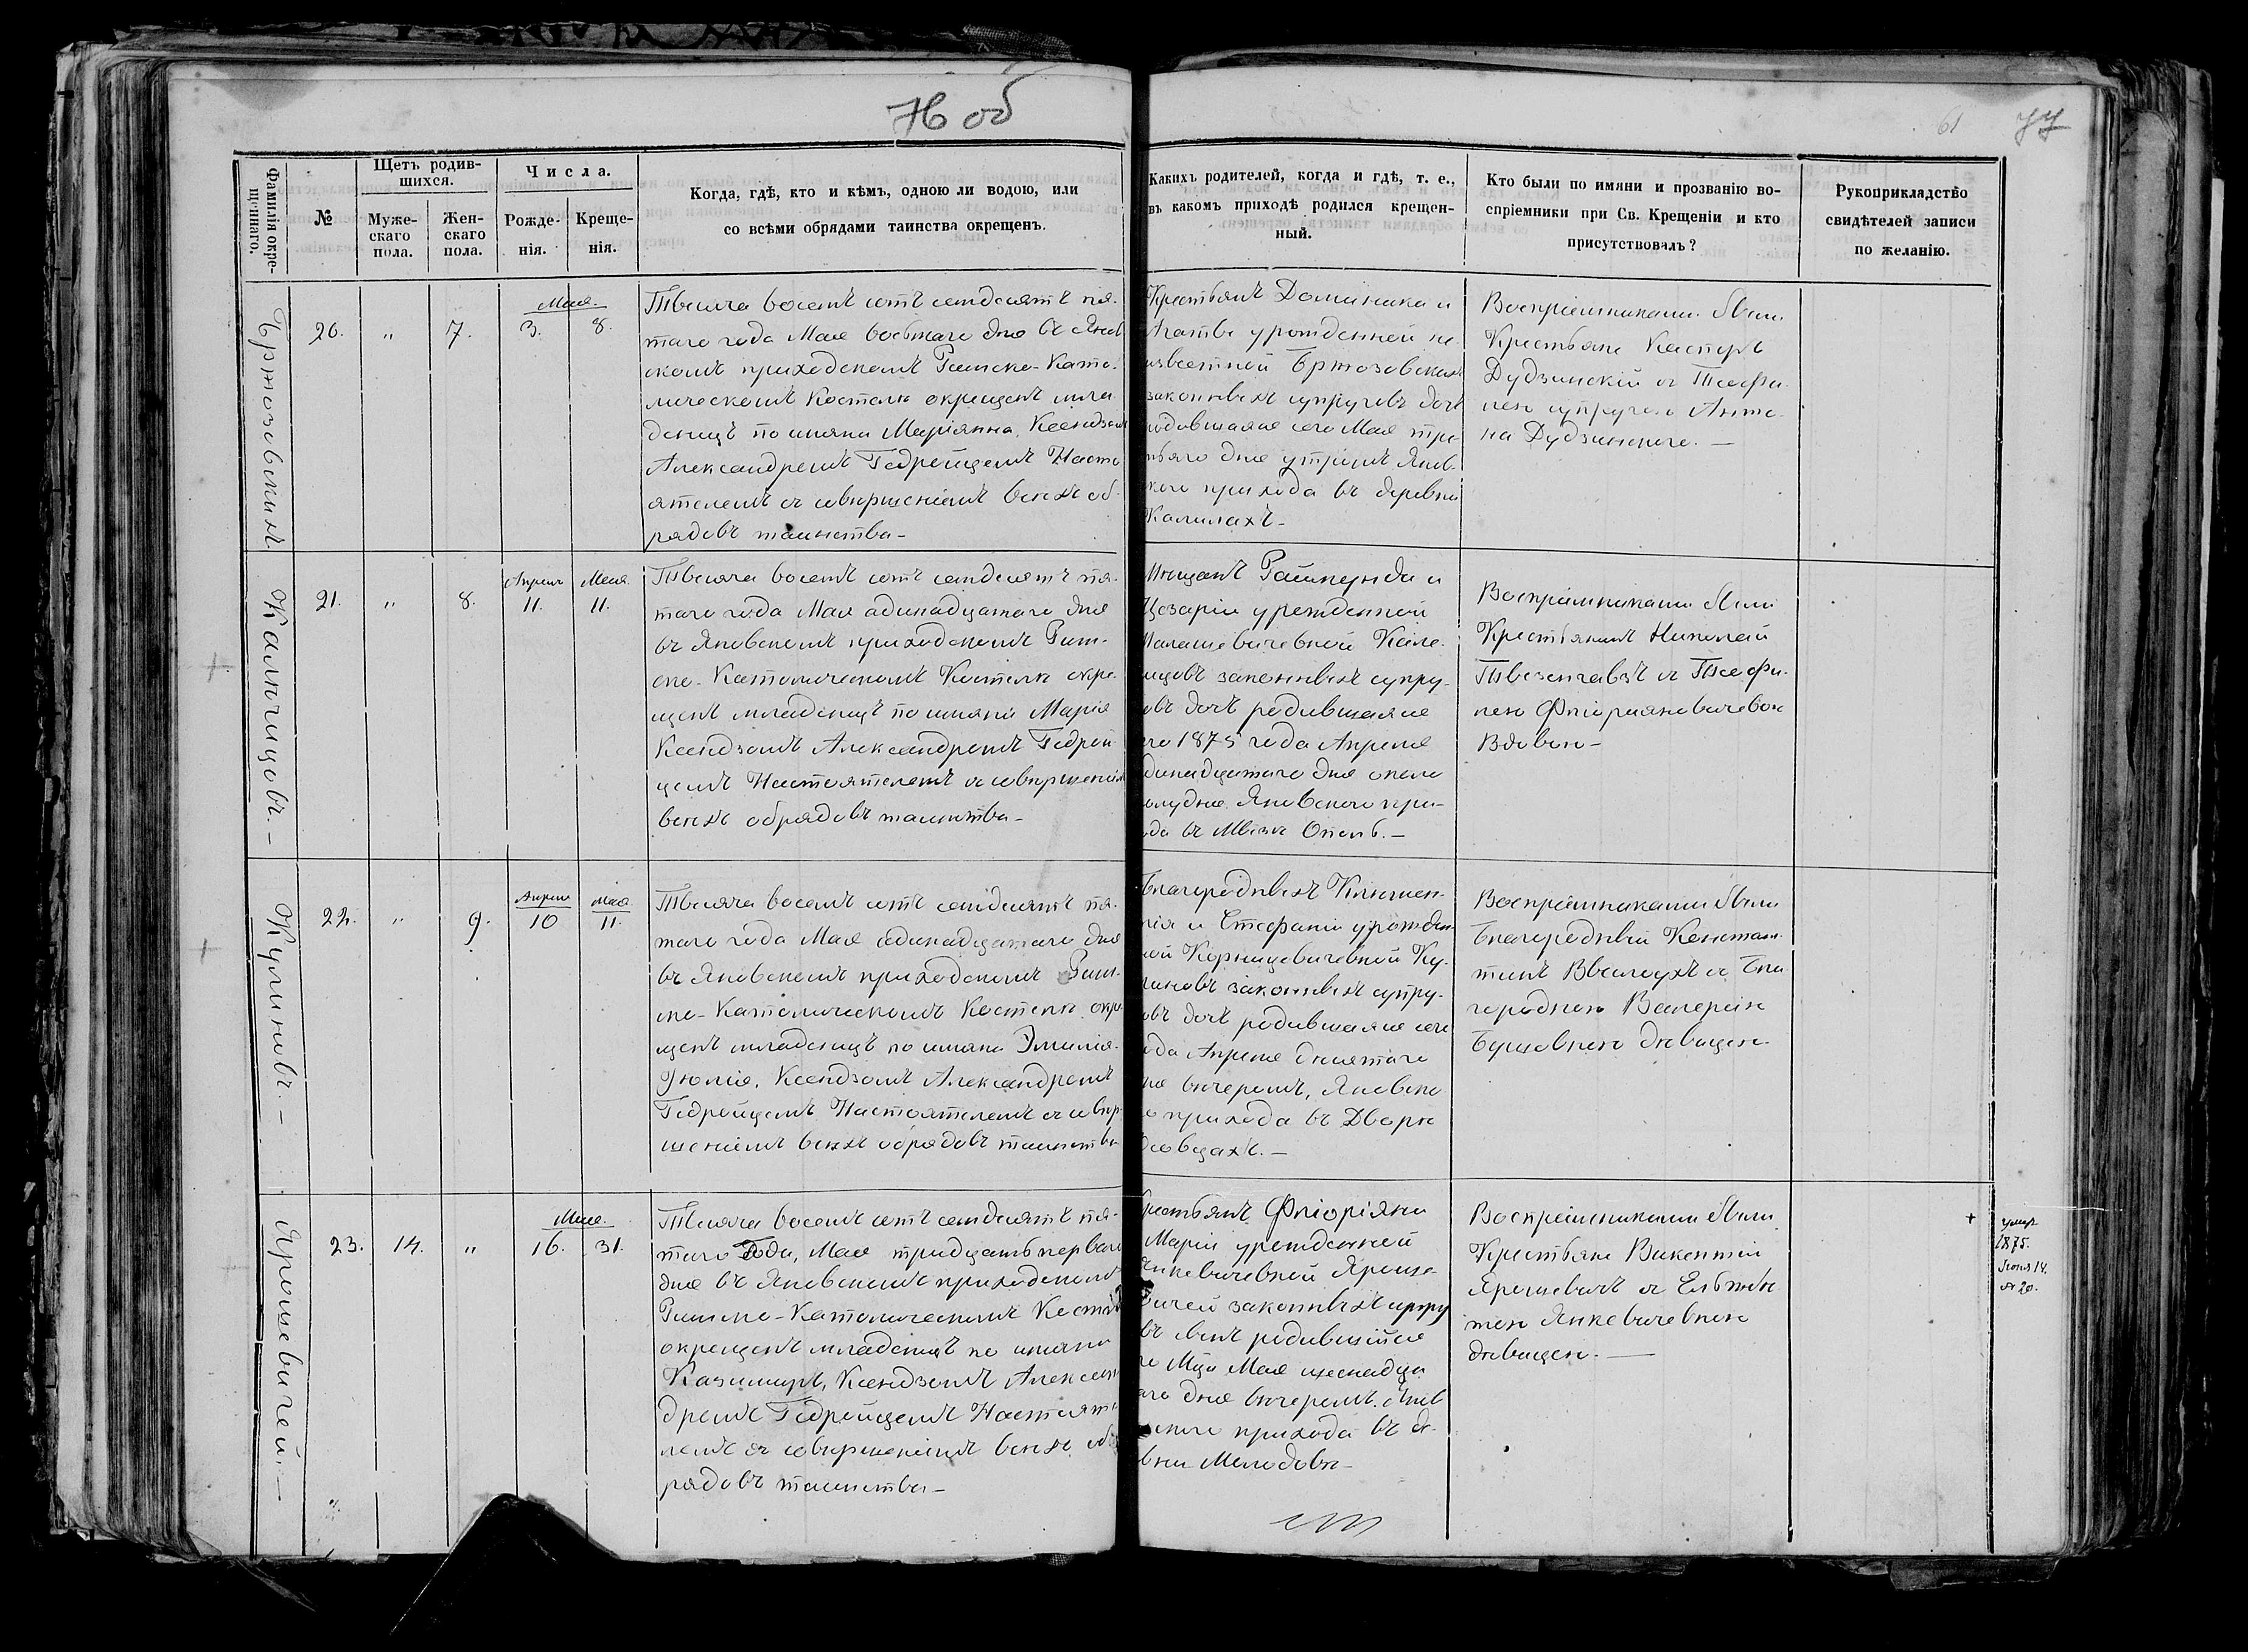 76 об
61
77
Фамилія окре-
щеннаго.
№
Щетъ родив-
шихся.
Муже-
скаго
пола.
Жен-
скаго
пола.
Числа.
Рожде-
нія.
Креще-
нія.
Когда, гдѣ, кто и кѣмъ, одною ли водою, или
со всѣми обрядами таинства окрещенъ.
Какихъ родителей, когда и гдѣ, т. е.,
въ какомъ приходѣ родился крещен-
ный.
Кто были по имяни и прозванію во-
спріемники при Св. Крещеніи и кто
присутствовалъ?
Рукоприкладство
свидѣтелей записи
по желанію.
Бржозовскихъ
20.
"
7.
Мая.
3.
8.
Тысяча восемъ сотъ семдесятъ пя-
таго года Мая восьмаго дня въ Янов
скомъ приходскомъ Римско-Като-
лическомъ Костелѣ окрещенъ мла-
денецъ по имяни Маріянна, Ксендзомъ
Александромъ Гедройцемъ Насто
ятелемъ съ совершеніемъ всѣхъ об-
рядовъ таинства-
Крестьянъ Доминика и
Агаты урожденной не
извѣстной Бржозовскихъ
законныхъ супруговъ дочь
родившаяся сего Мая тре
тьяго дня утромъ Янов-
скаго прихода въ деревни
Калилахъ-
Воспріемниками были
Крестьяне Касперъ
Дудзинскій съ Теофи-
лею супругою Анто-
на Дудзинскаго. —
Калючицовъ.-
21.
"
8.
Апреля
11.
Мая
11.
Тысяча восемъ сотъ семдесятъ пя-
таго года Мая адинадцатаго дня
въ Яновскомъ приходскомъ Рим-
ско-Католическомъ Костелѣ окре-
щенъ младенецъ по имяни Марія
Ксендзомъ Александромъ Гедрой
цемъ Настоятелемъ съ совершеніемъ
всѣхъ обрядовъ таинства-
Мѣщанъ Раймунда и
Цезаріи урожденной
законныхъ супру-
овъ дочь родившаяся
го 1875 года Апреля
динадцатаго дня около
олудня Яновскаго при-
ода въ Мѣст. Ополь.-
Воспріемниками были
Крестьянинъ Николай
съ Теофи-
лею Флоріяновичевою
Вдовою-
Кулиновъ.-
22.
"
9.
Апреля
10
Мая
11.
Тысяча восемъ сотъ семдесятъ пя-
таго года Мая адинадцатаго дня
въ Яновскомъ приходскомъ Рим-
ско-Католическомъ Костелѣ окре
щенъ младенецъ по имяни Эмилія-
Юлія, Ксендзомъ Александромъ
Гедройцемъ Настоятелемъ съ совер-
шеніемъ всѣхъ обрядовъ таинства
Благородныхъ Климен-
тія и Стефаніи урожден
ной Корницевичевной Ку-
линовъ законныхъ супру-
овъ дочь родившаяся сего
ода Апреля десятаго
ня вечеромъ, Яновска
о прихода въ Дворѣ
Воспріемниками были
Благородный Констан-
тинъ съ Бла
городною Валеріею
дѣвицею.
Ярошевичей.-
23.
14.
"
Мая.
16.
31.
Тысяча восемъ сотъ семдесятъ пя-
таго Года, Мая тридцать перваго
дня въ Яновскомъ приходскомъ
Римско-Католическомъ Костелѣ
окрещенъ младенецъ по имяни
Казимиръ, Ксендзомъ Алексан
дромъ Гедройцемъ Настояте
лемъ съ совершеніемъ всѣхъ об
рядовъ таинства-
рестьянъ Флоріяна
Маріи урожденной
Янкевичевной Яроше-
вичей законныхъ супру
въ сынъ родившійся
го Мца Мая шеснадца
аго дня вечеромъ, Янов
скаго прихода въ де-
вни Мелодовѣ-
Воспріемниками были
Крестьяне Викентій
Ярошевичъ съ Ельжбѣ
тою Янкевичевною
дѣвицею.-
умер.
1875.
Іюня 14.
№ 20.